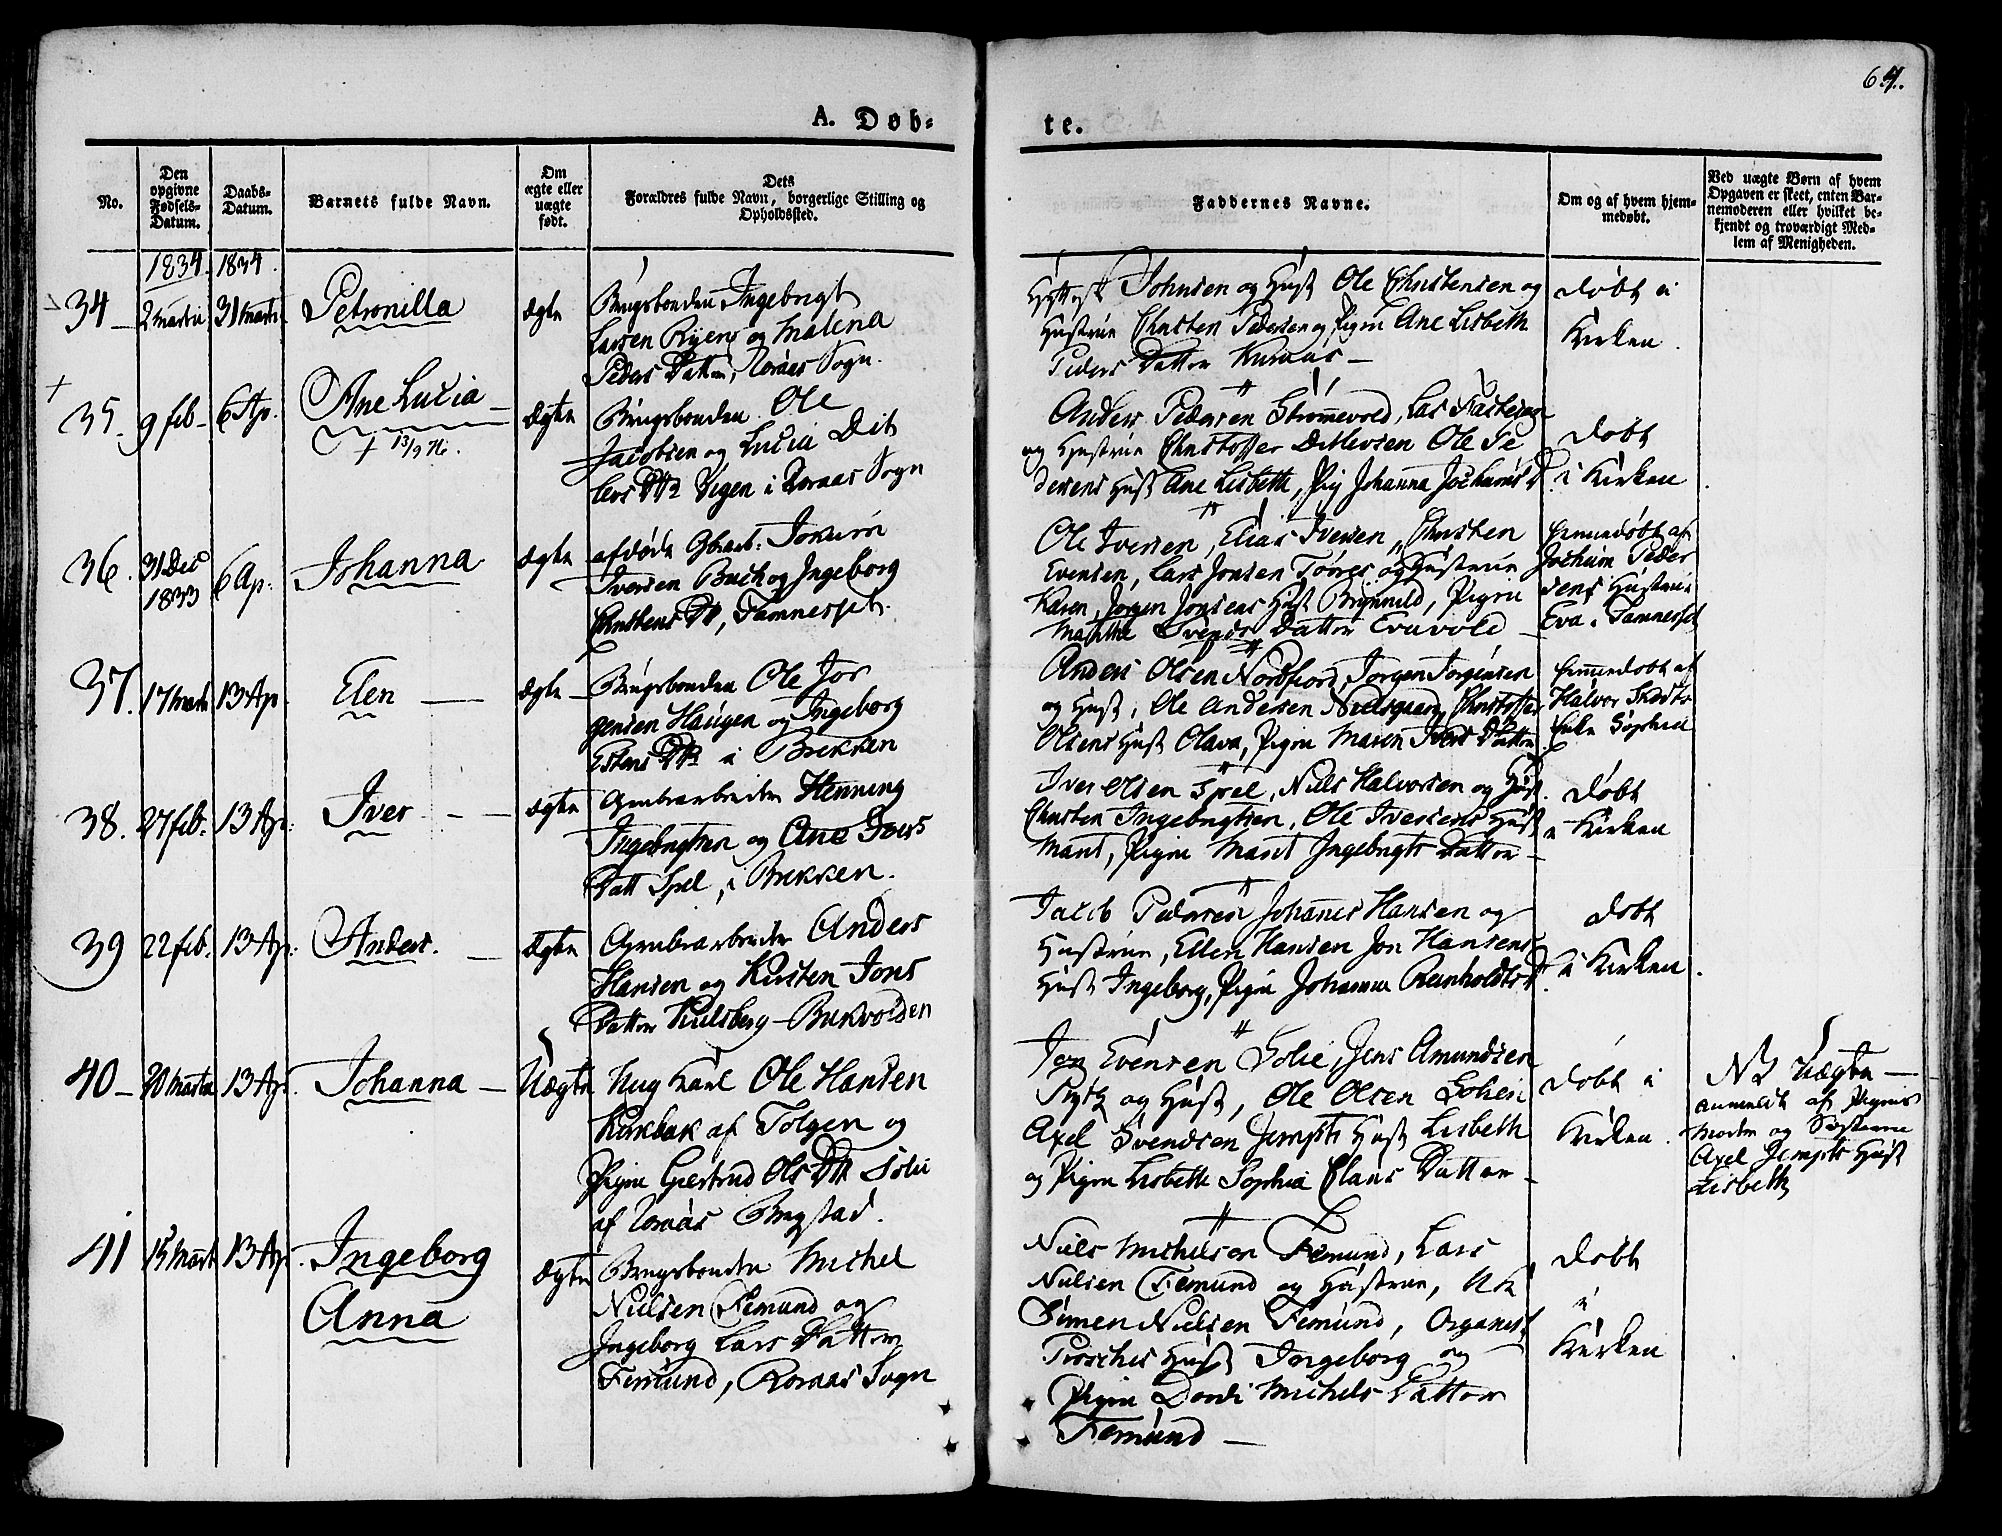 64.
A. Døb-
te.
No.
Den
opgivne
Fødsels-
Datum.
Daabs-
Datum.
Barnets fulde Navn.
Om
ægte eller
uægte
født.
Dets
Forældres fulde Navn, borgerlige Stilling og
Opholdssted.
Faddernes Navne.
Om og af hvem hjem-
medøbt.
Ved uægte Børn af hvem
Opgaven er skeet, enten Bar-
nemoderen eller hvilket be-
kjendt og troværdigt Med-
lem af Menigheden.
1834. 1834.
34 2 Martii 31 Marts Petronilla ægte
Brugsbonden Ingebrigt
Larsen Ryen og Malena
Peders Datter, Røraas Sogn.
Johnsen og Hust Ole Christensen og
Hustrue Christen Pedersen og Pigen Ane Lisbeth
Peders Datter Kuraas
døbt i
Kirken
35. 9 feb 6 Ap. Ane Lucia ægte
+ 13/9
Brugsbonden Ole
Jacobsen og Lucia Dit
levs Dtr Vegen i Røraas Sogn
Anders Pedersen Strømmevold, Lars
og Hustrue Christoffer Ditlevsen Ole Pe
dersens Hust Ane Lisbeth, Pig Johanna Jochums D.
døbt
i Kirken
36. 31 Dec 1833 6 Ap. Johanna ægte
afdøde Jokum
Iversen Buch og Ingeborg
Christens Dt, Tamnesset.
Ole Iversen, Elias Iversen, Christen
Evensen, Lars Jonsen Tørres og Hustrue
Karen, Jørgen Jonsens Hust Brynnild, Pigen
Marithe Svends Datter Evavold
hiemmedøbt af
Jochum Peder
sens Hustrue
Eva i Tamnesset
37. 17 Marts 13 Ap Elen ægte
Brugsbonden Ole Jør
gensen Haugen og Ingeborg
Estens Dtr i Brekken
Anders Olsen Nordfiord, Jørgen Jørgensen
og Hust, Ole Andersen Nielsgaard, Christoffer
Olsens Hust Olava, Pigen Maren Ivers Datter
hiemmedøbt af
Halvor
Enke Sophia
38. 27 feb. 13 Ap. Iver ægte
Grubearbeider Henning
Ingebrigtsen og Ane Ivers
Datt Spel, i Brekken.
Iver Olsen Spel, Niels Halvorsen og Hust.
Christen Ingebrigtsen, Ole Iversens Hust
Marit, Pigen Marit Ingebrigts Datter
døbt
i Kirken
39 22 feb. 13 Ap. Anders. ægte
Grubearbeider Anders
Hansen og Kirsten Jons
Datter Brekvolden
Jacob Pedersen Johannes Hansen og
Hustrue, Ellen Hansen Jon Hansens
Hust Ingeborg, Pigen Johanna Reinholdts D.
døbt
i Kirken
40 20 Martii 13 Ap. Johanna Uægte
Ung Karl Ole Hansen
Kirkbak af Tolgen og
Pigen Giertrud Ols Dtt Solie
af Røraas Bergstad.
Jon Evensen Solie, Jens Amundsen
Rytz og Hust, Ole Olsen Solien
Axel Svendsen Jempts Hust Lisbeth
og Pigen Lisbeth Sophia Clans Datter
døbt i
Kirken
NB Uægte
anmeldt af Pigens
Moder og
Axel Jempts Hust
Lisbeth
41 15 Marts 13 Ap. Ingeborg
Anna ægte
Brugsbonden Michel
Nielsen Femund og
Ingeborg Lars Datter
Femund, Røraas Sogn
Niels Michelsen Femund, Lars
Nielsen Femund og Hustrue,
Simen Nielsen Femund, Organist
Prosches Hust Ingeborg og
Pigen Dordi Michels Datter
Femund
døbt
i
Kirken